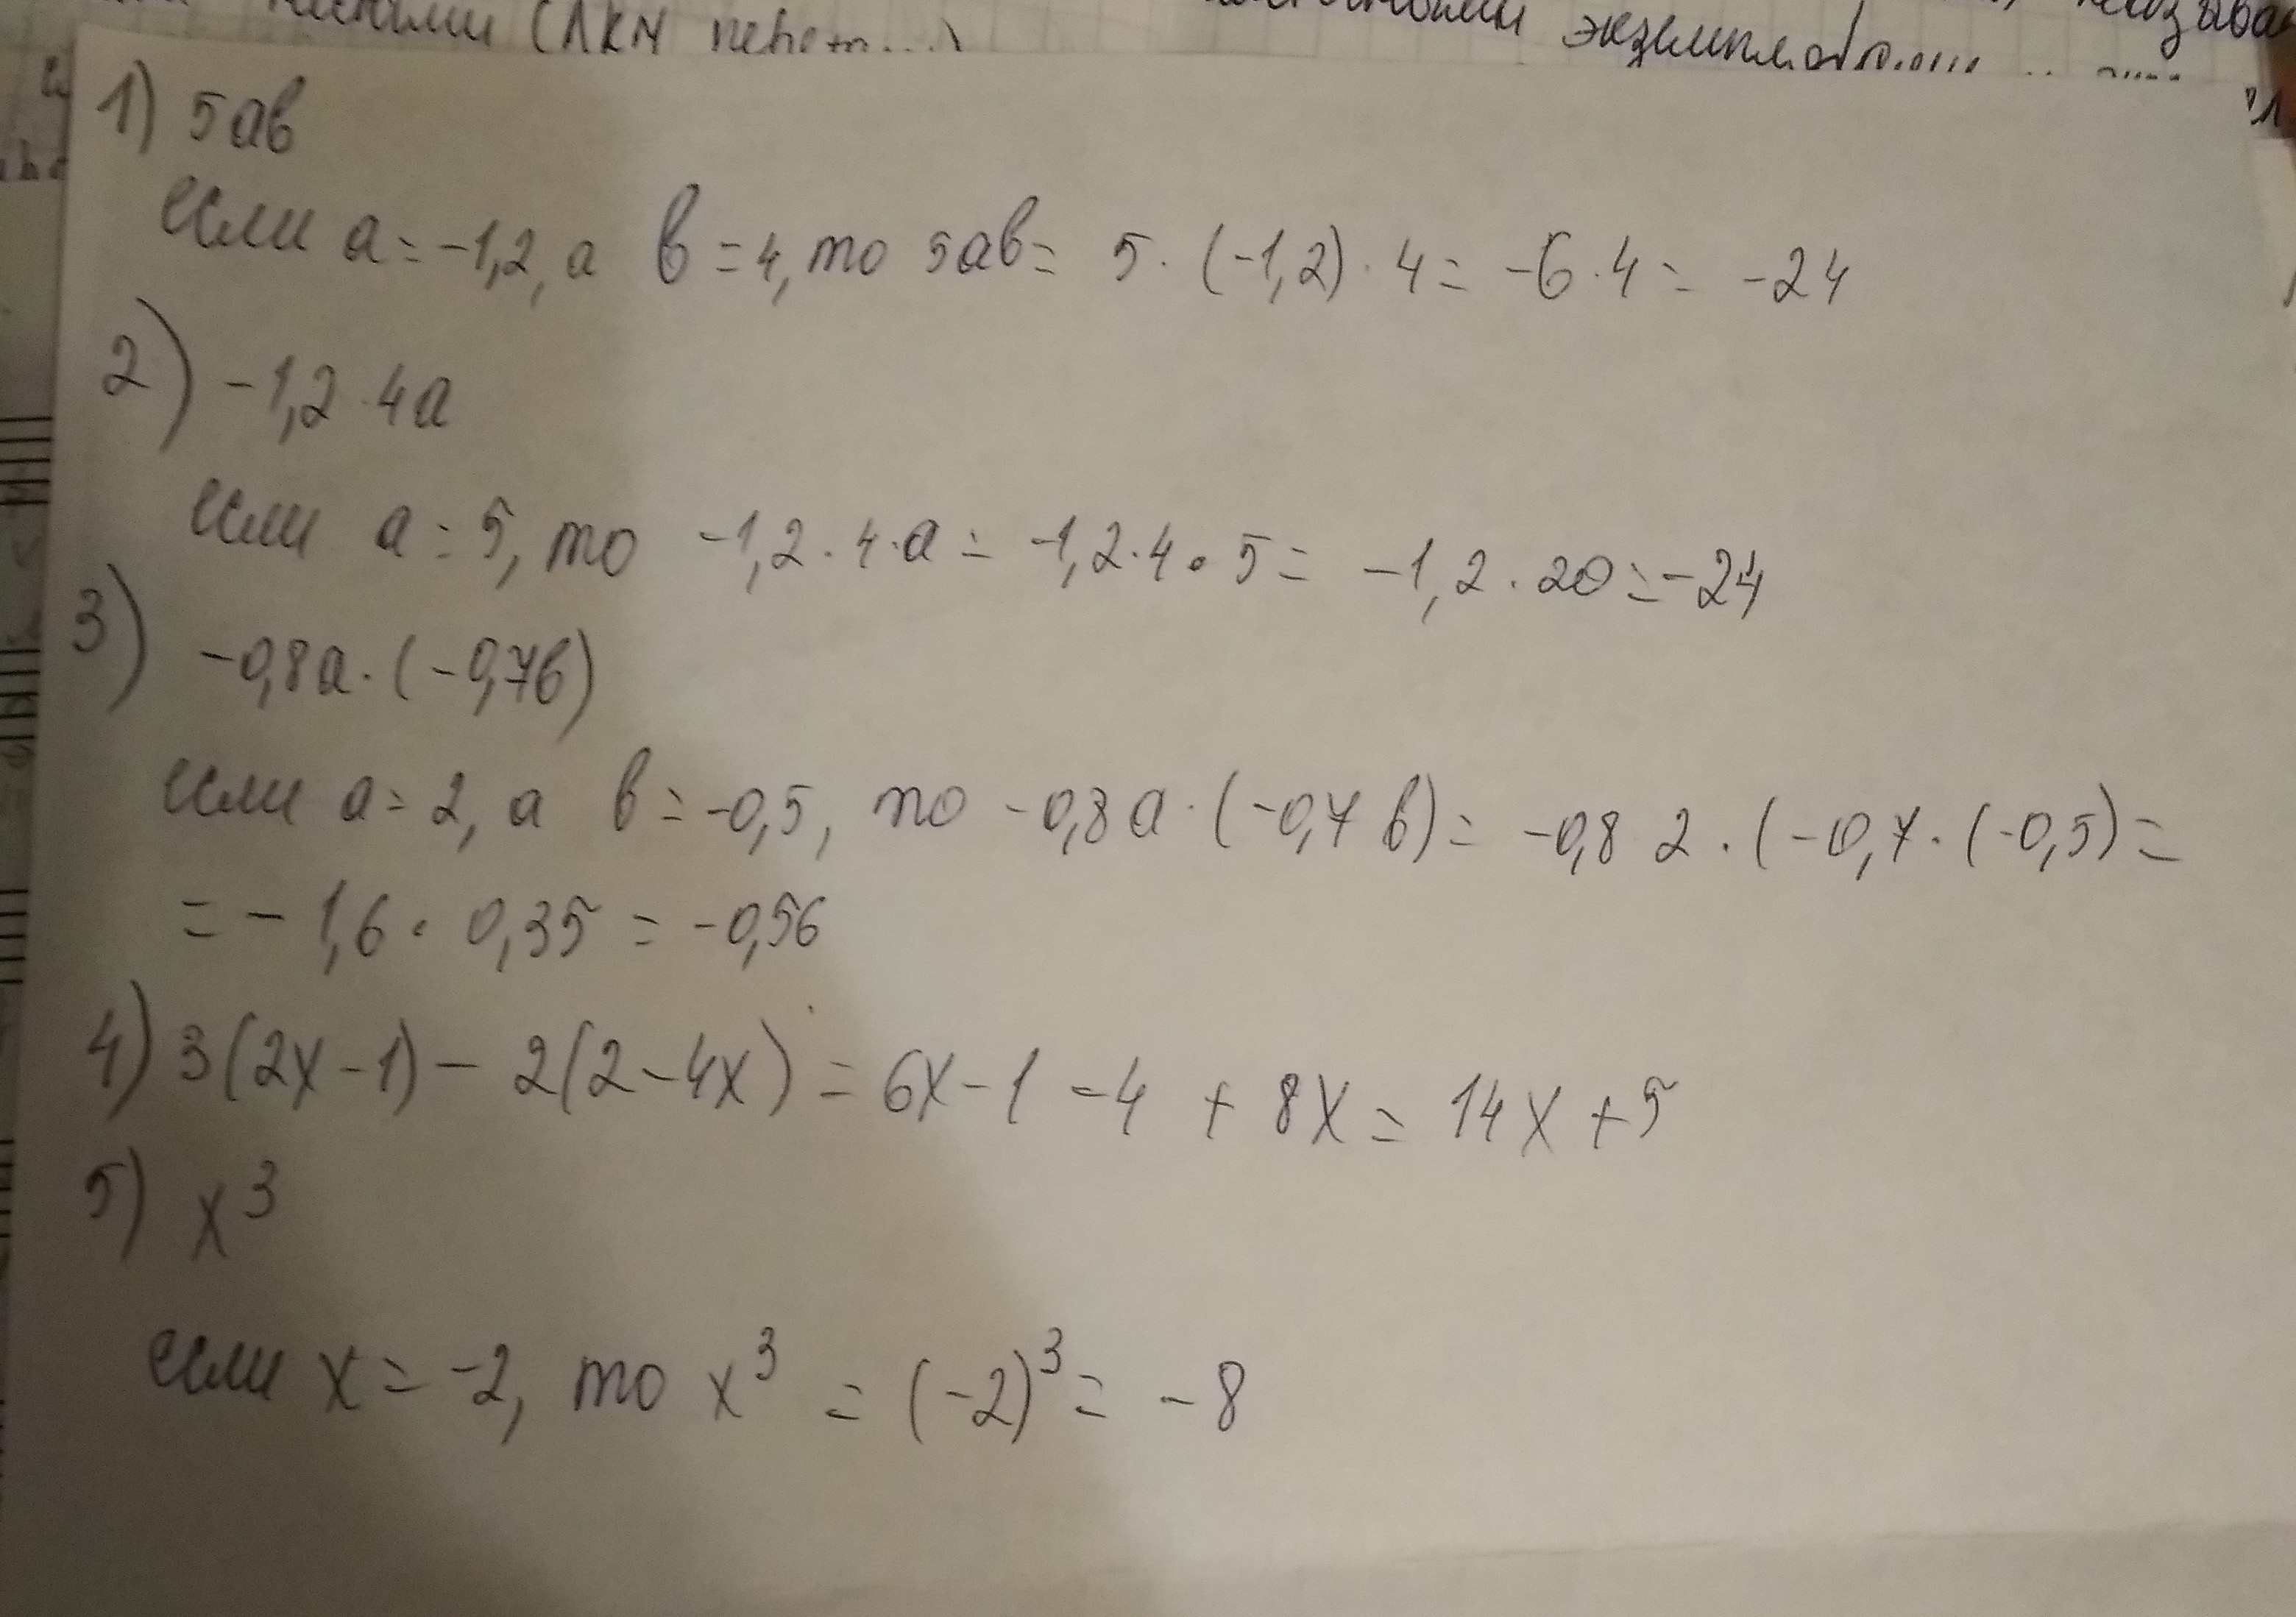 (ЛКМ
1) 5ав
если а = -1,2, а в = 4, то 5ав = 5 · (-1,2) · 4 = -6 · 4 = -24
2) -1,2 · 4а
если а = 5, то -1,2 · 4 · а = -1,2 · 4 · 5 = -1,2 · 20 = -24
3) -0,8а · (-0,7в)
если а = 2, а в = -0,5, то -0,8а · (-0,7в) = -0,8 2 · (-0,7 · (-0,5) =
= - 1,6 · 0,35 = -0,56
4) 3(2х - 1) - 2(2 - 4х) = 6х - 1 - 4 + 8х = 14х + 5
5) х³
если х = -2, то х³ = (-2)³ = -8